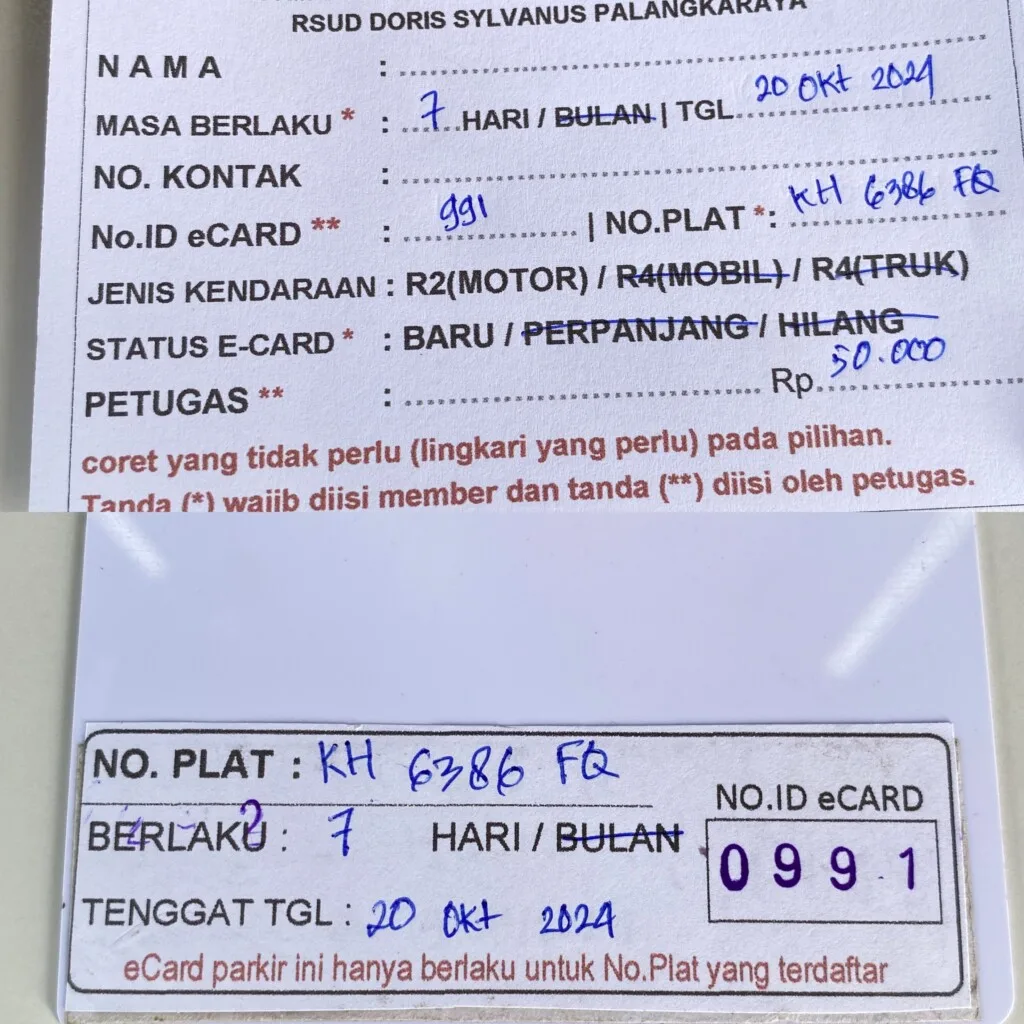 RSUD DORIS SYLVANUS PALANGKARAYA
N A M A :
MASA BERLAKU * : 7 HARI / BULAN | TGL 20 Okt 2024
NO. KONTAK :
No.ID eCARD ** : 991 | NO.PLAT *: KH 6386 FQ
JENIS KENDARAAN : R2(MOTOR) / R4(MOBIL) / R4(TRUK)
STATUS E-CARD * : BARU / PERPANJANG / HILANG
PETUGAS ** : Rp. 50.000
coret yang tidak perlu (lingkari yang perlu) pada pilihan.
Tanda (*) wajib diisi member dan tanda (**) diisi oleh petugas.
NO. PLAT : KH 6386 FQ
BERLAKU : 7 HARI / BULAN
TENGGAT TGL : 20 Okt 2024
NO.ID eCARD
0991
eCard parkir ini hanya berlaku untuk No.Plat yang terdaftar